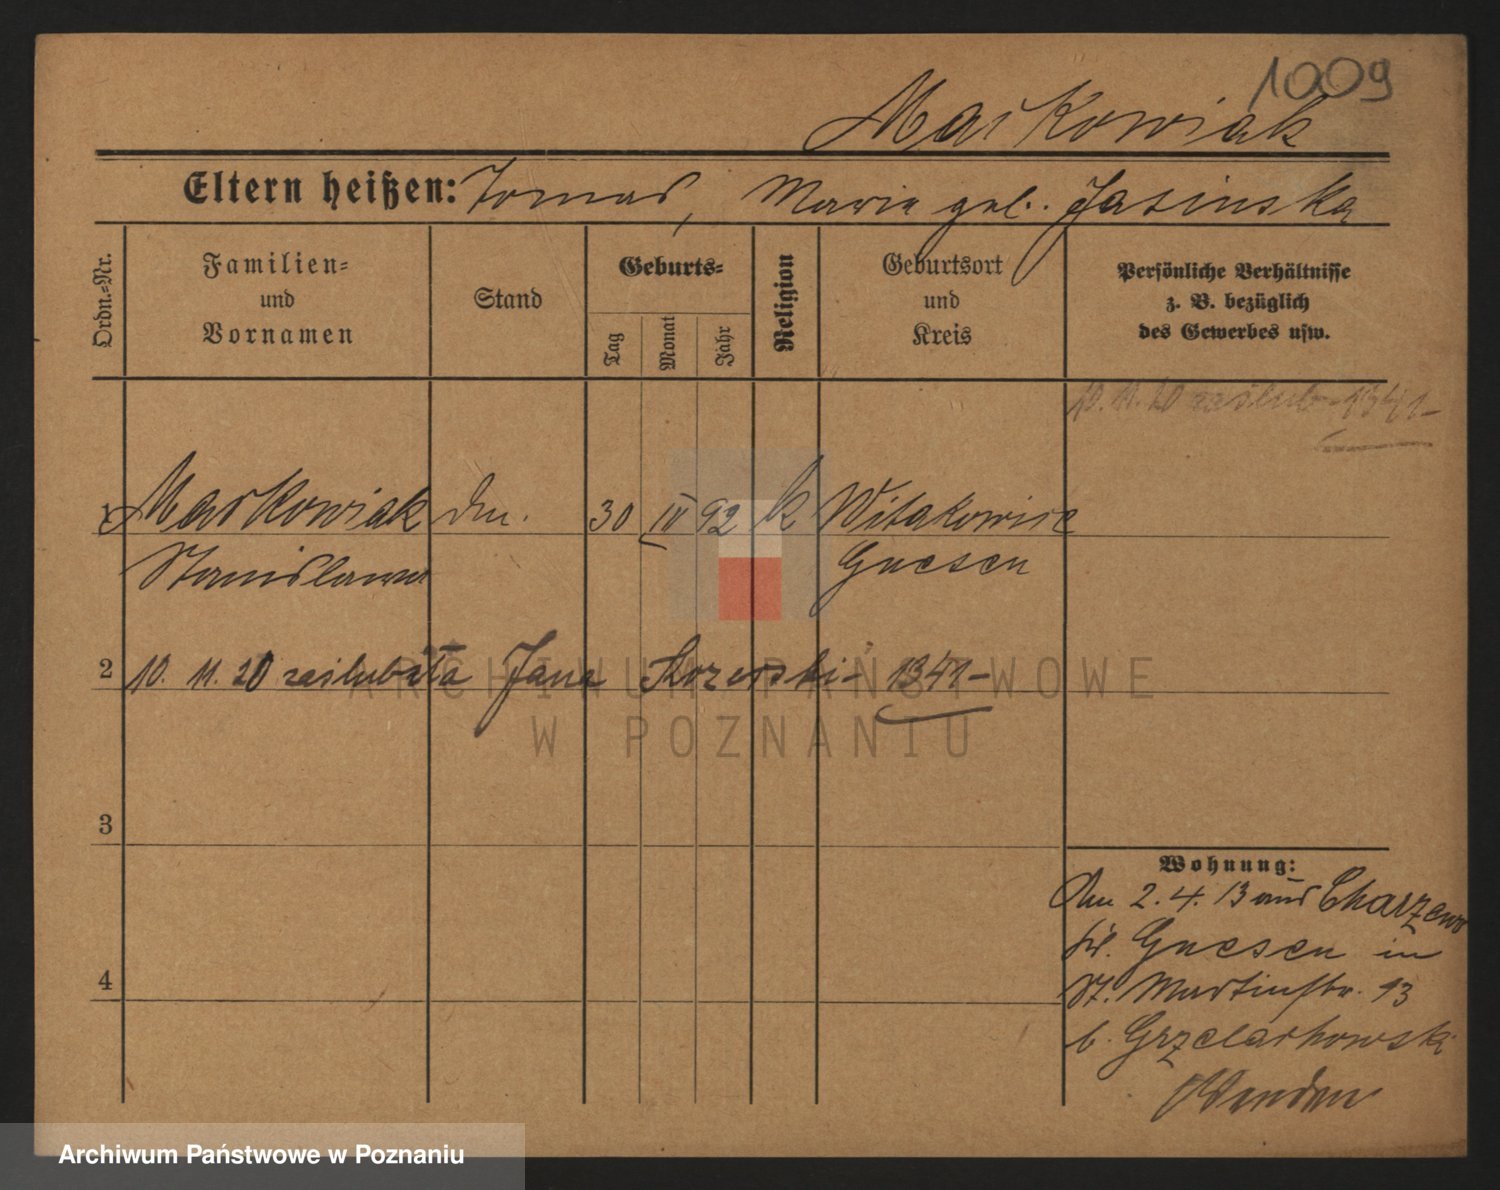 1009
Markowiak
Eltern heißen: Tomas, Marie geb. Jasinska
Ordn.-Nr.
Familien-
und
Vornamen
Stand
Geburts-
Tag
Monat
Jahr
Religion
Geburtsort
und
Kreis
Persönliche Verhältnisse
z. B. bezüglich
des Gewerbes usw.
10. 11. 20 zaślub 1341-
1 Markowiak 30 IV 92 k Witakowice
Stanislawa Gnesen
2 10. 11. 20 zaślubiła Jana Kozerski - 1341-
3
4
Wohnung:
2. 4. 13 aus Charzewo
Gnesen in
St. Martinstr. 93
b. Grzelachowski
Wenden
ARCHIWUM PAŃSTWOWE
W POZNANIU
Archiwum Państwowe w Poznaniu